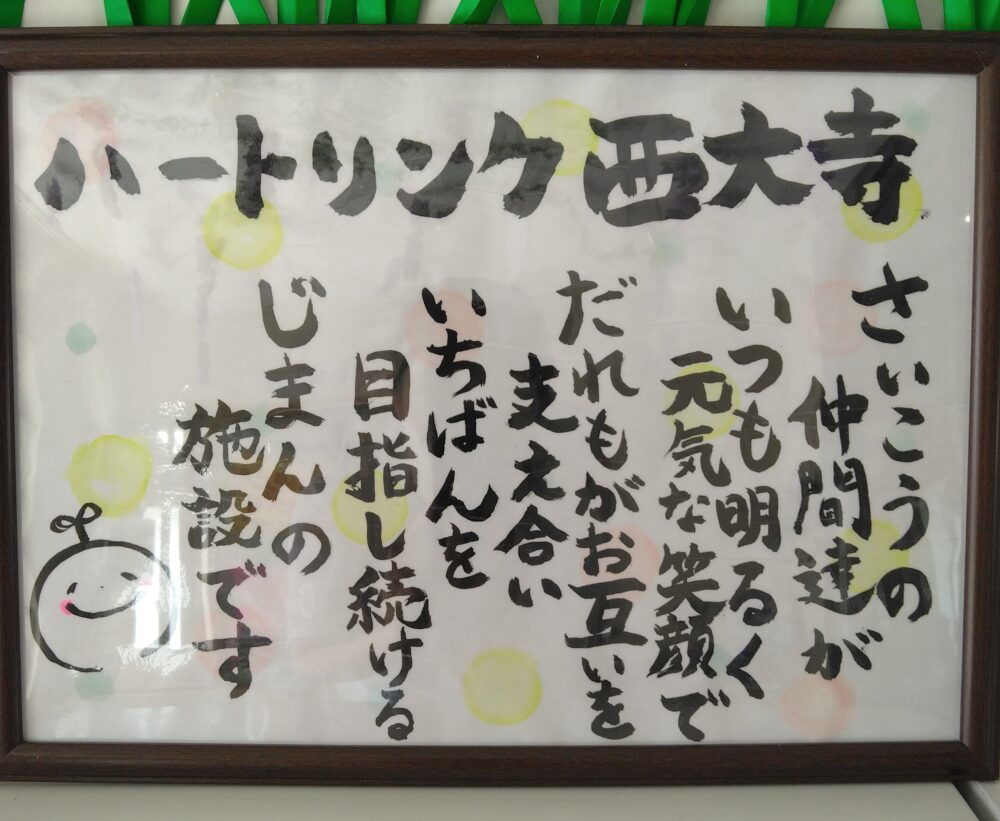 ハートリンク西大寺
さいこうの
仲間達が
いつも明るく
元気な笑顔で
だれもがお互いを
支え合い
いちばんを
目指し続ける
じまんの
施設です